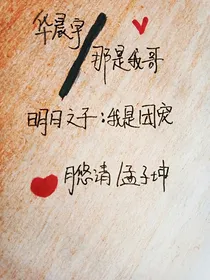 华晨宇
那是我哥
明日之子:我是团宠
月悠清/孟子坤